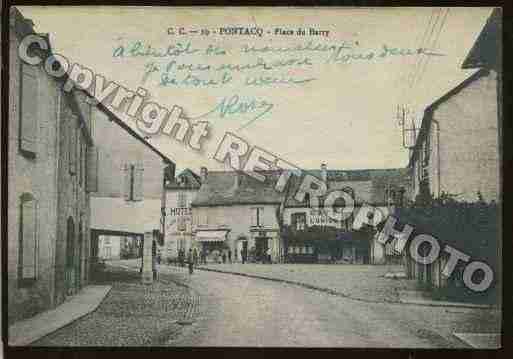 C. C. — 10 - PONTACQ - Place du Barry
A bientôt des nouvelles
Je vous embrasse tous deux
de tout cœur
Rose
HOTEL
Copyright RETROPHOTO